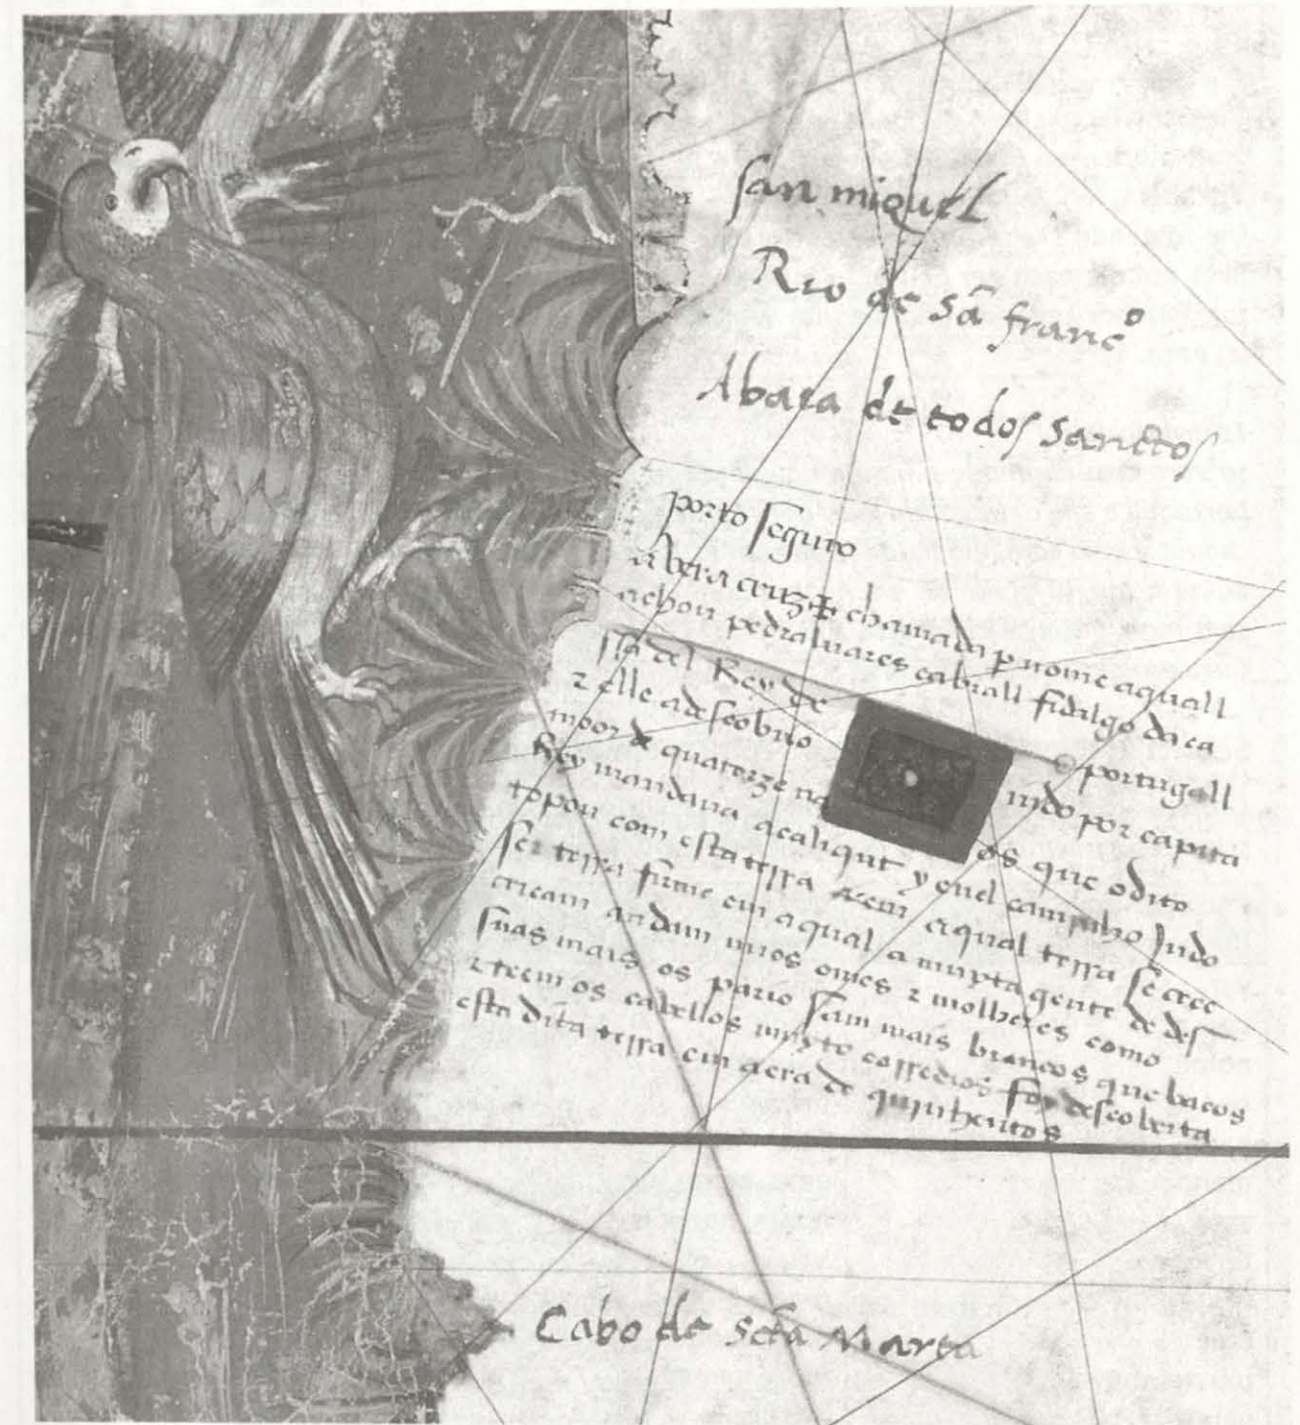 san miguel
Rio de sã franc.º
Abaia de todos sanctos
porto seguro
a bera cruz + chamada p nome aquall
achou pedraluares cabrall fidalgo da ca
ssa del Rey de portugall
z elle a descobrio indo por capita
moor de quatorze na os que o dito
Rey mandaua a caliqut y enel caminho Jndo
topou com esta terra aqual terra se cree
ser terra firme em a qual a muyta gente de des
cricam andam nuos omes z molheres como
suas mais os pario sam mais brancos que bacos
z teem os cabellos muyto corredios foy descoberta
esta dita terra em a era de quinhentos
Cabo de scta Marta